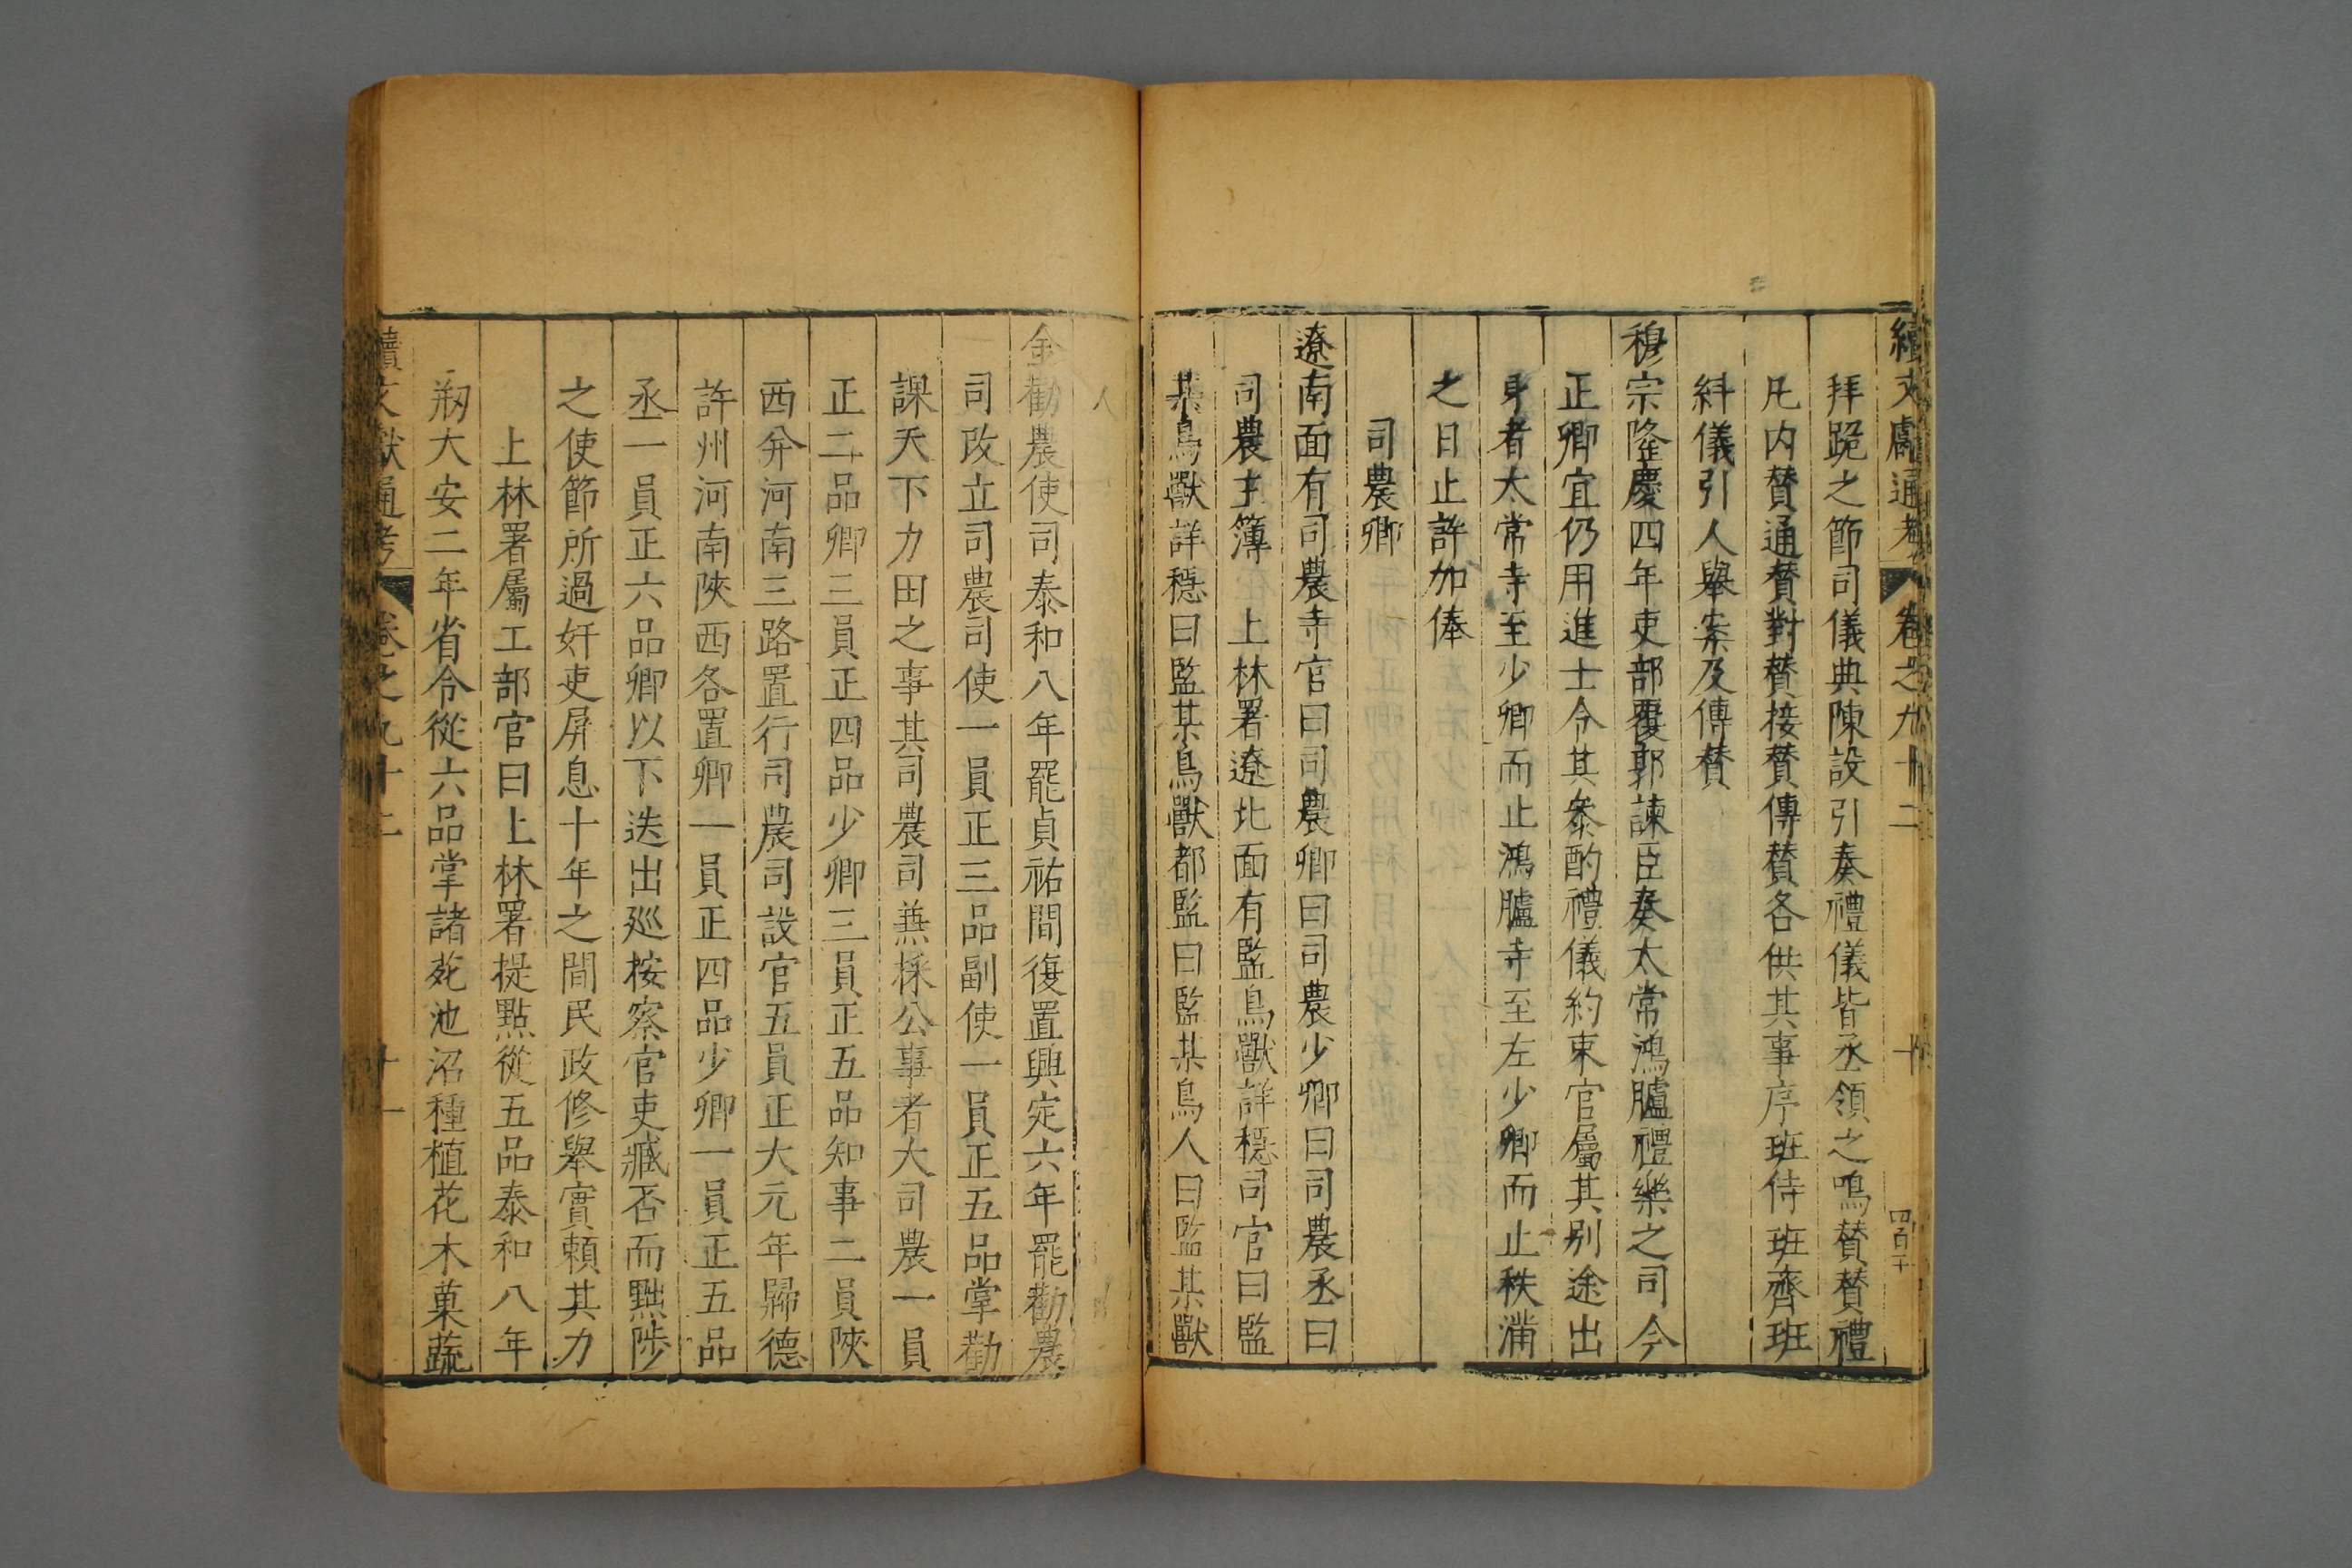 續文獻通考 卷之九十二 十 四百二十
拜跪之節司儀典陳設引奏禮儀皆丞領之鳴贊贊禮
凡内贊通贊對贊接贊傳贊各供其事序班侍班齊班
糾儀引人舉案及傳贊
穆宗隆慶四年吏部覆郭諫臣奏太常鴻臚禮樂之司今
正卿宜仍用進士令其叅酌禮儀約束官屬其别途出
身者太常寺至少卿而止鴻臚寺至左少卿而止秩滿
之日止許加俸
司農卿
遼南面有司農寺官曰司農卿曰司農少卿曰司農丞曰
司農主簿 上林署遼北面有監鳥獸詳穩司官曰監
某鳥獸詳穩曰監某鳥獸都監曰監某鳥人曰監某獸
人
金勸農使司泰和八年罷貞祐間復置興定六年罷勸農
司改立司農司使一員正三品副使一員正五品掌勸
課天下力田之事其司農司兼採公事者大司農一員
正二品卿三員正四品少卿三員正五品知事二員陝
西并河南三路置行司農司設官五員正大元年歸德
許州河南陝西各置卿一員正四品少卿一員正五品
丞一員正六品卿以下迭出廵按察官吏臧否而黜陟
之使節所過奸吏屏息十年之間民政修舉實頼其力
上林署屬工部官曰上林署提點從五品泰和八年
剏大安二年省令從六品掌諸苑池沼種植花木菓蔬
續文獻通考 卷之九十二 十一